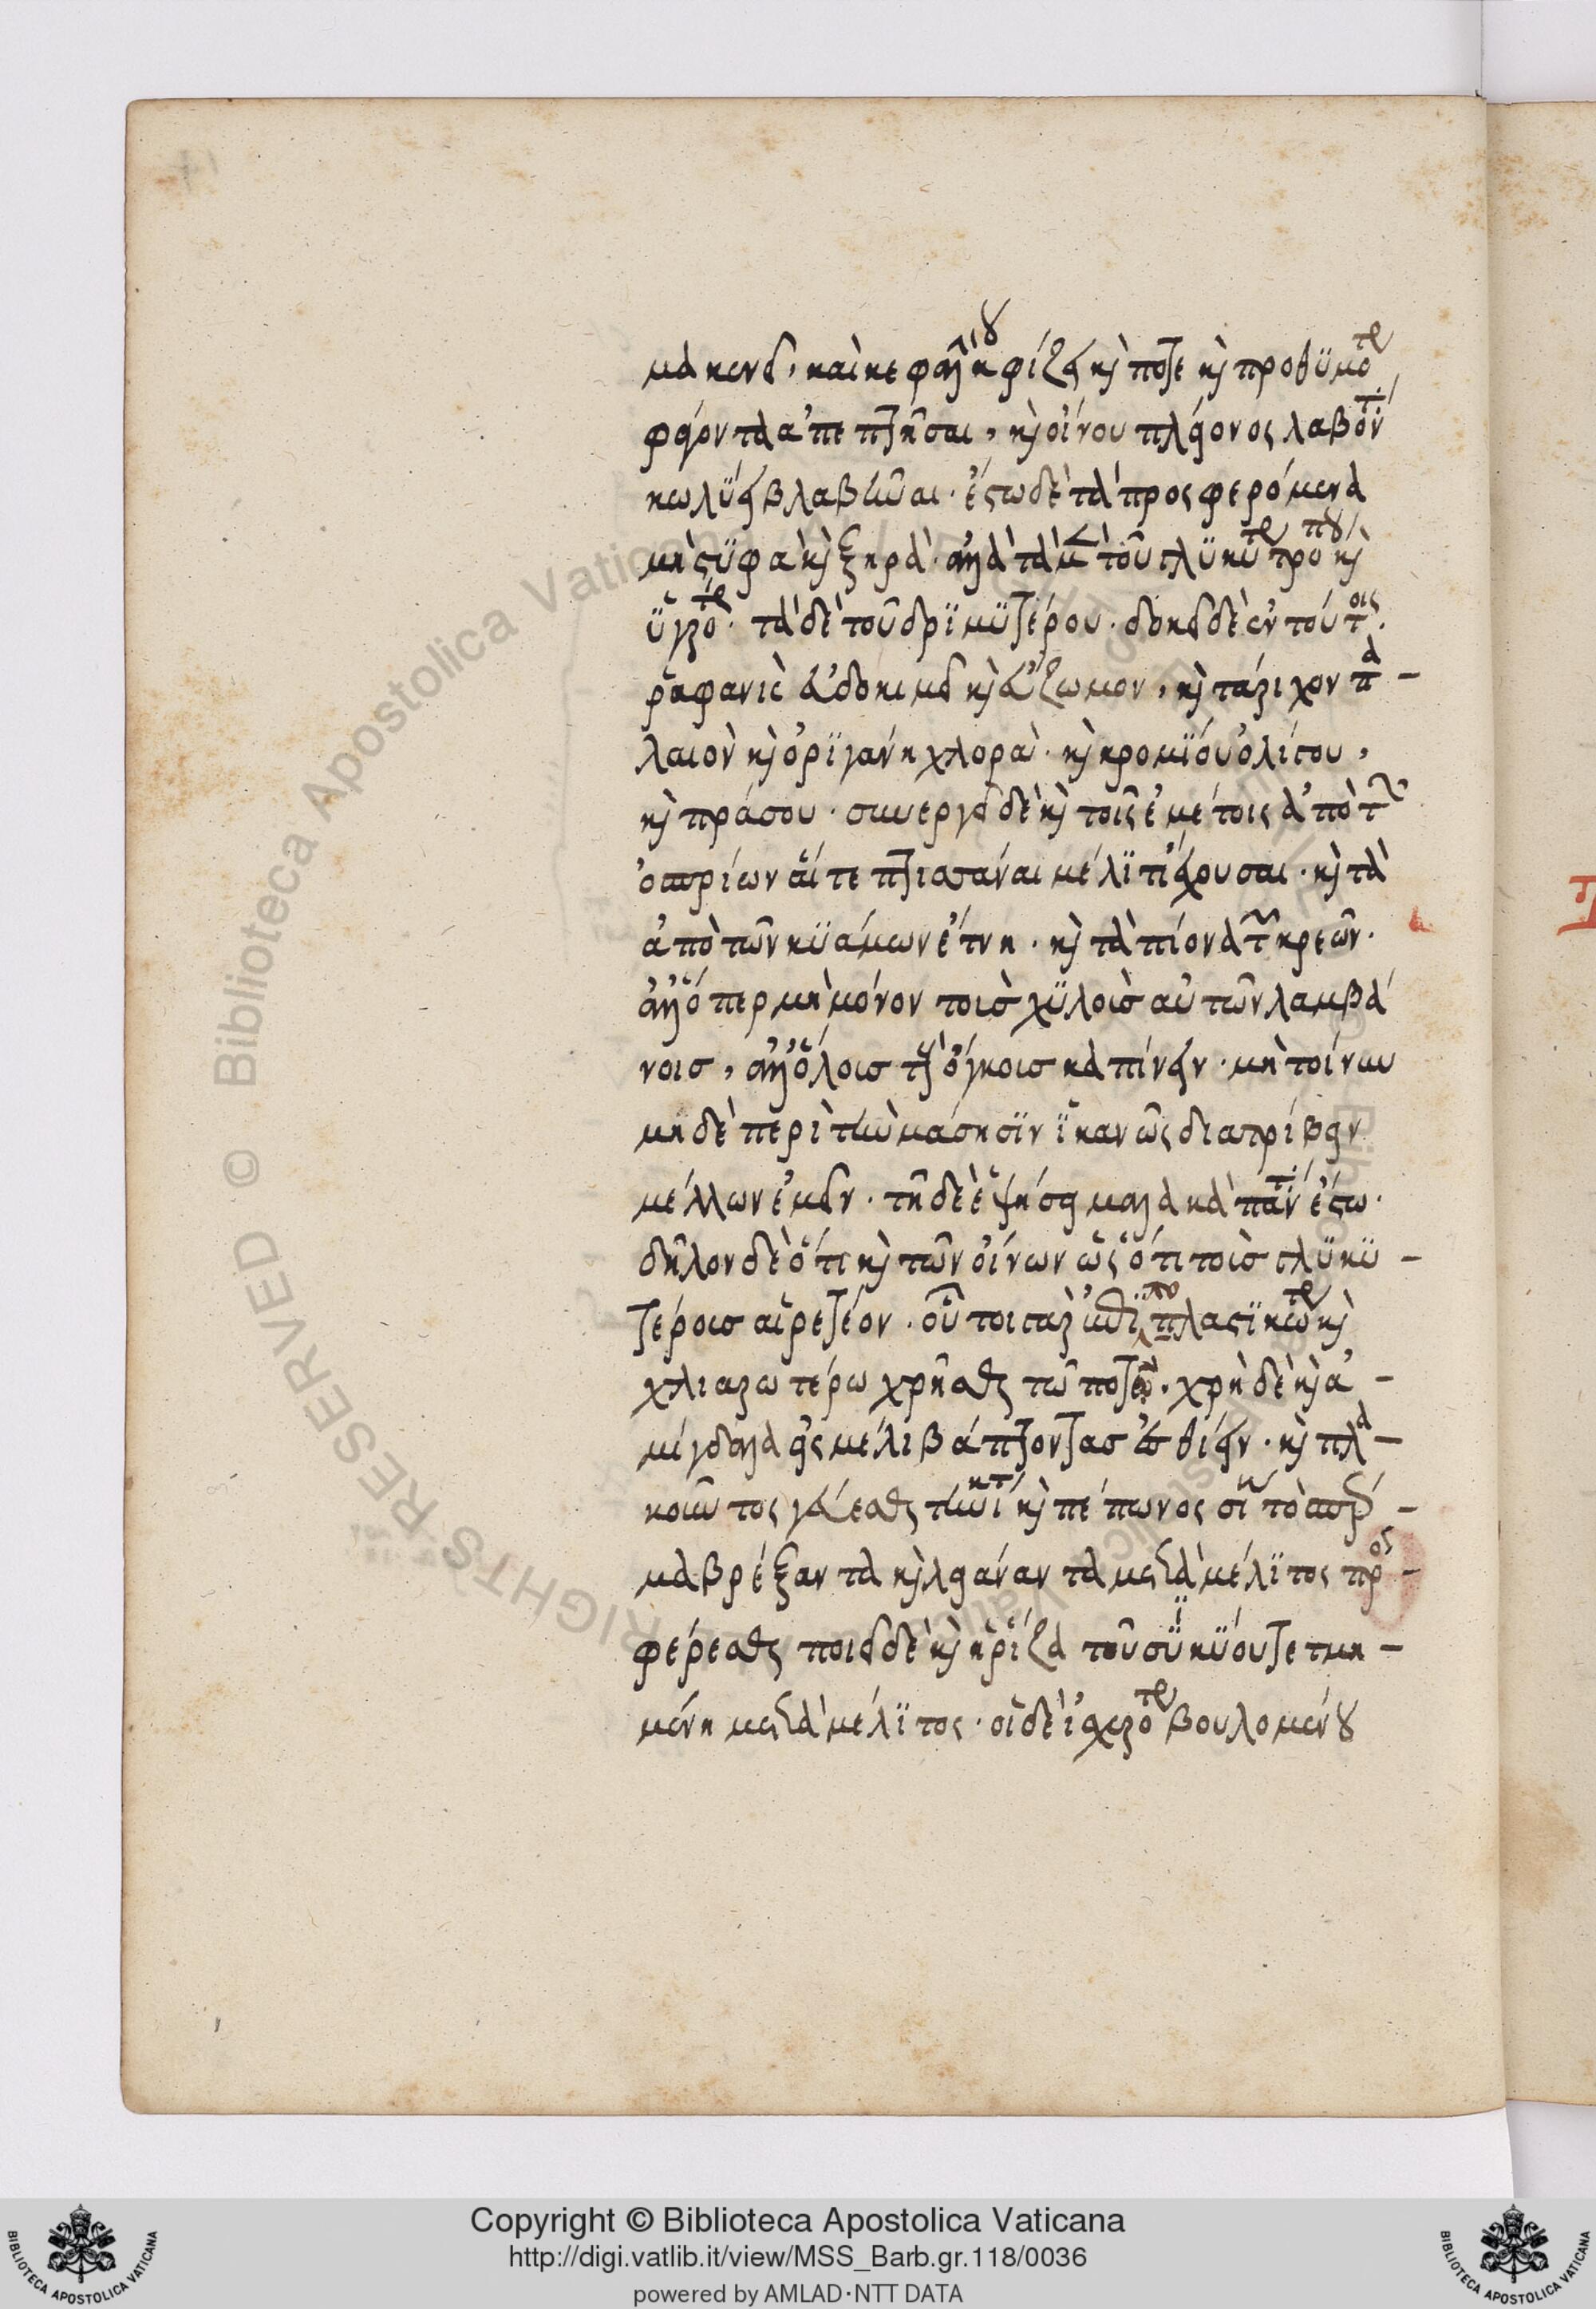 μακενεῖ, καὶ κεφαλὴ κουφίζει καὶ ποτε καὶ προθυμότερ
φέρονται ἀπεπτῆσαι, καὶ οἴνου πλείονος λαβόντι
κωλύει βλαβῆναι. ἔστω δὲ τὰ προσφερόμενα
μὴ στυφὰ καὶ ξηρά. ἀλλὰ τὰ μὲν τοῦ γλυκυτέρου που καὶ
ὑγροτέρ. τὰ δὲ τοῦ δριμυτέρου. δοκεῖ δὲ ἐν τούτοις.
ῥαφανὶς εὐδοκιμεῖ καὶ εὔζωμον, καὶ τάριχον πα-
λαιὸν καὶ ὀρίγανη χλορὰ. καὶ κρομίου ὀλίγου,
καὶ πράσου. συνεργεῖ δὲ καὶ τοῖς ἐμέτοις ἀπὸ τῶν
ὀσπρίων αἵ τε πτισάναι μέλιτι ἔχουσαι. καὶ τὰ
ἀπὸ τῶν κυάμων ἔτνη. καὶ τὰ πίονα τῶν κρεῶν.
ἀλλ' ὅπερ μὴ μόνον τοῖς χυλοῖς αὐτῶν λαμβά
νοις, ἀλλ' ὅλοις τοῖς ὄγκοις καταπίνειν. μὴ τοίνυν
μηδὲ περὶ τὴν μάσησιν ἱκανῶς διατρίβειν
μέλλων ἐμεῖν. τῇ δὲ ἑψήσει μαλακὰ πάντ' ἔστω.
δῆλον δὲ ὅτι καὶ τῶν οἴνων ὡς ὅτι τοῖς γλυκυ-
τέροις αἱρετέον.
χλιαρωτέρω χρῆσθαι τῷ ποτῷ. χρὴ δὲ καὶ ἀ-
μίγδαλα εἰς μέλι βάπτοντας ἐσθίειν. καὶ πλα-
κοῦντος γεύεσθαι καὶ πέπωνος σικύου τὸ σπέρ-
μα βρέξαντα καὶ λεάναντα μετὰ μέλιτος προσ-
φέρεσθαι ποιεῖ δὲ καὶ ἡ ῥίζα τοῦ σικύου τετμη-
μένη μετὰ μέλιτος. οἱ δὲ ἰσχυρότερ βουλομένου